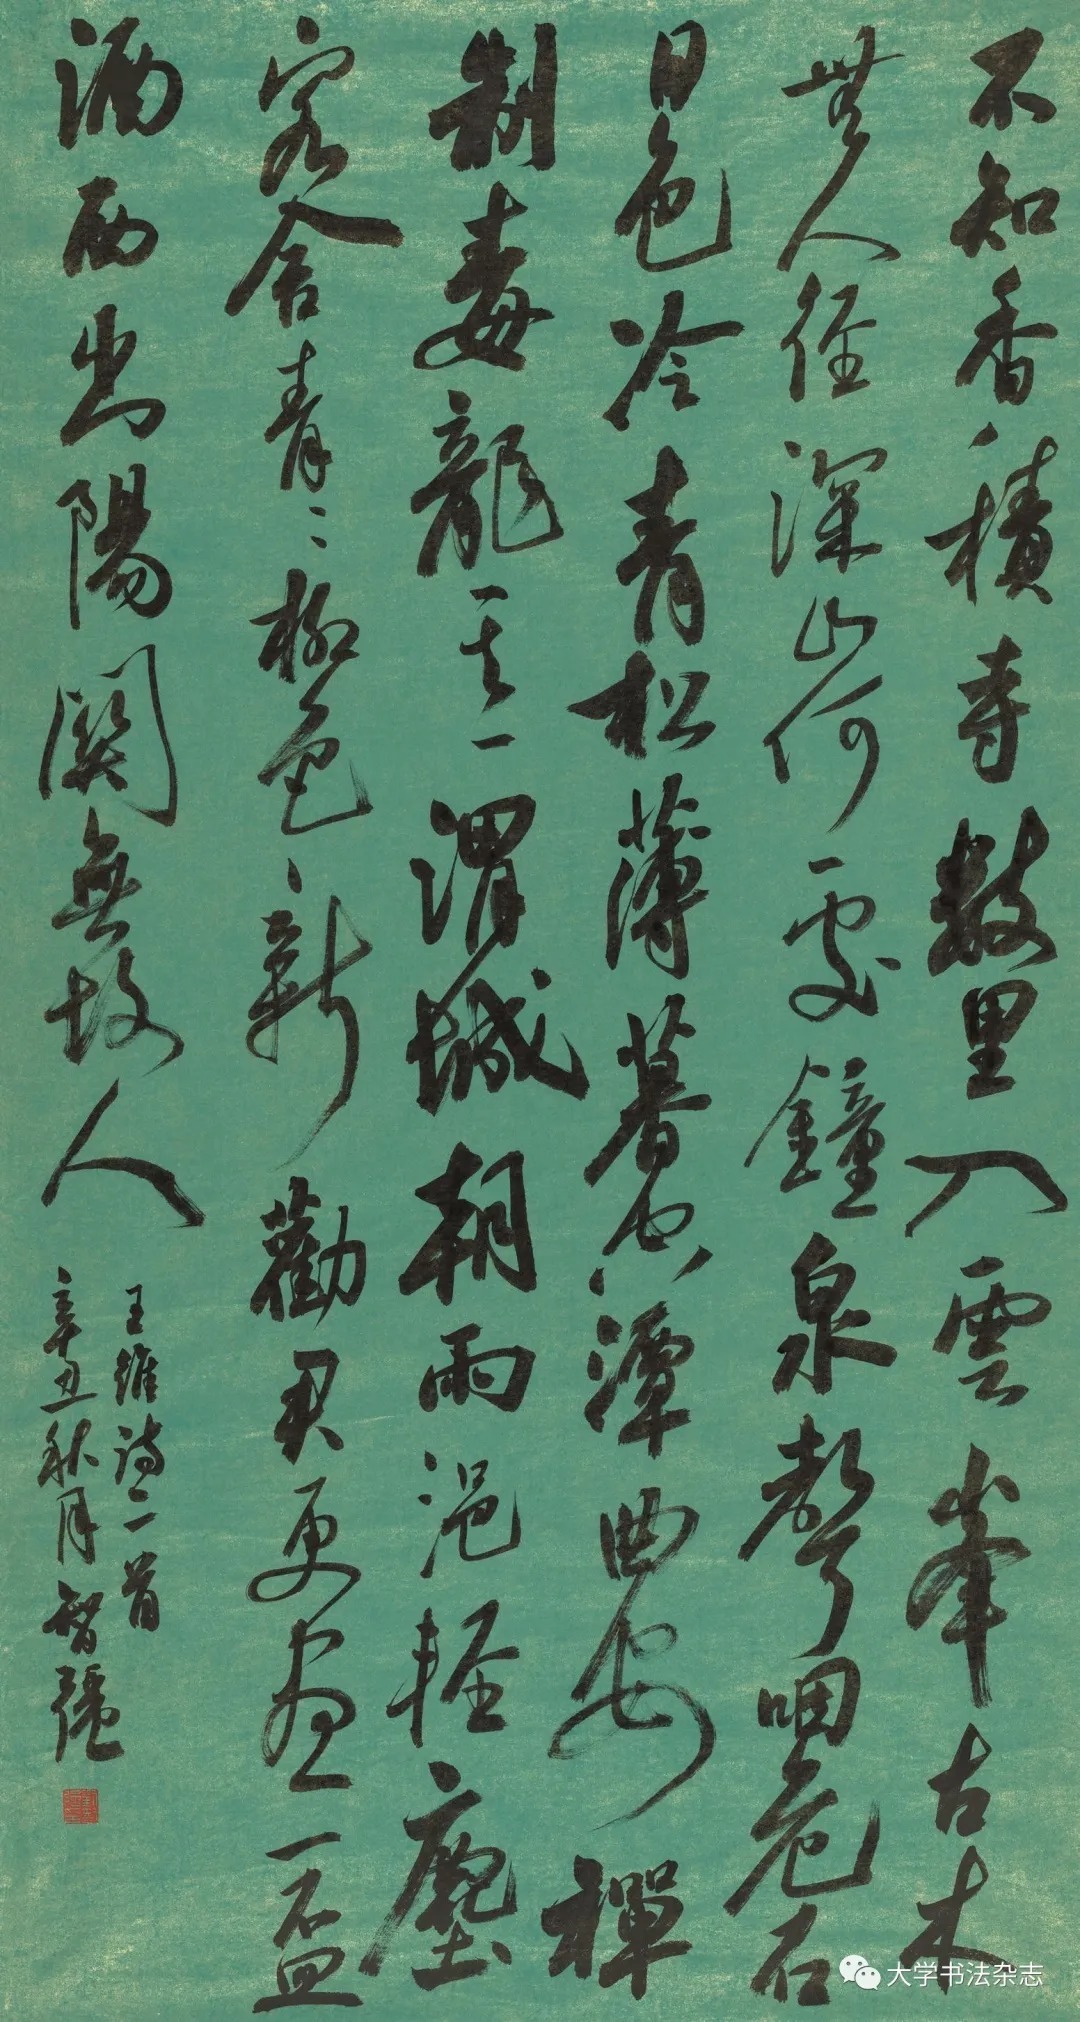 不知香積寺數里入雲峯古木
無人徑深山何處鐘泉聲咽危石
日色冷青松薄暮空潭曲安禪
制毒龍其一渭城朝雨浥輕塵
客舍青〻柳色新勸君更盡一盃
酒西出陽關無故人
王維詩二首
辛丑秋月智强
大学书法杂志